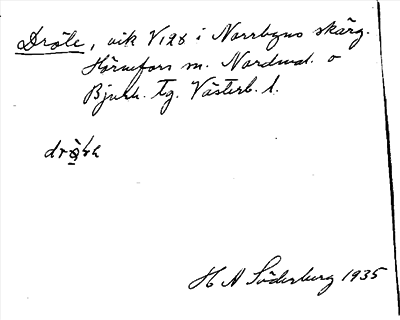 Dröle, vik V128 i Norrbyns skärg.
Hörnefors sn. Nordmal. o
Bjurh. tg. Västerb. l.
H A Söderburg 1935